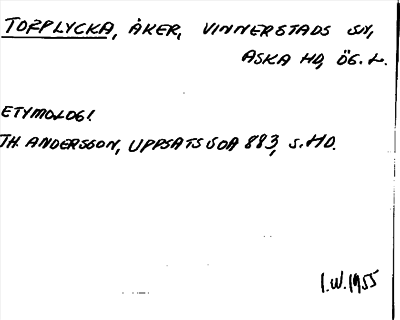 TOPPLYCKA, ÅKER, VINNERSTADS SN,
ASKA HD, ÖG. L.
ETYMOLOGI
TH. ANDERSSON, UPPSATS SOA 883, S. HD.
I.W. 1955